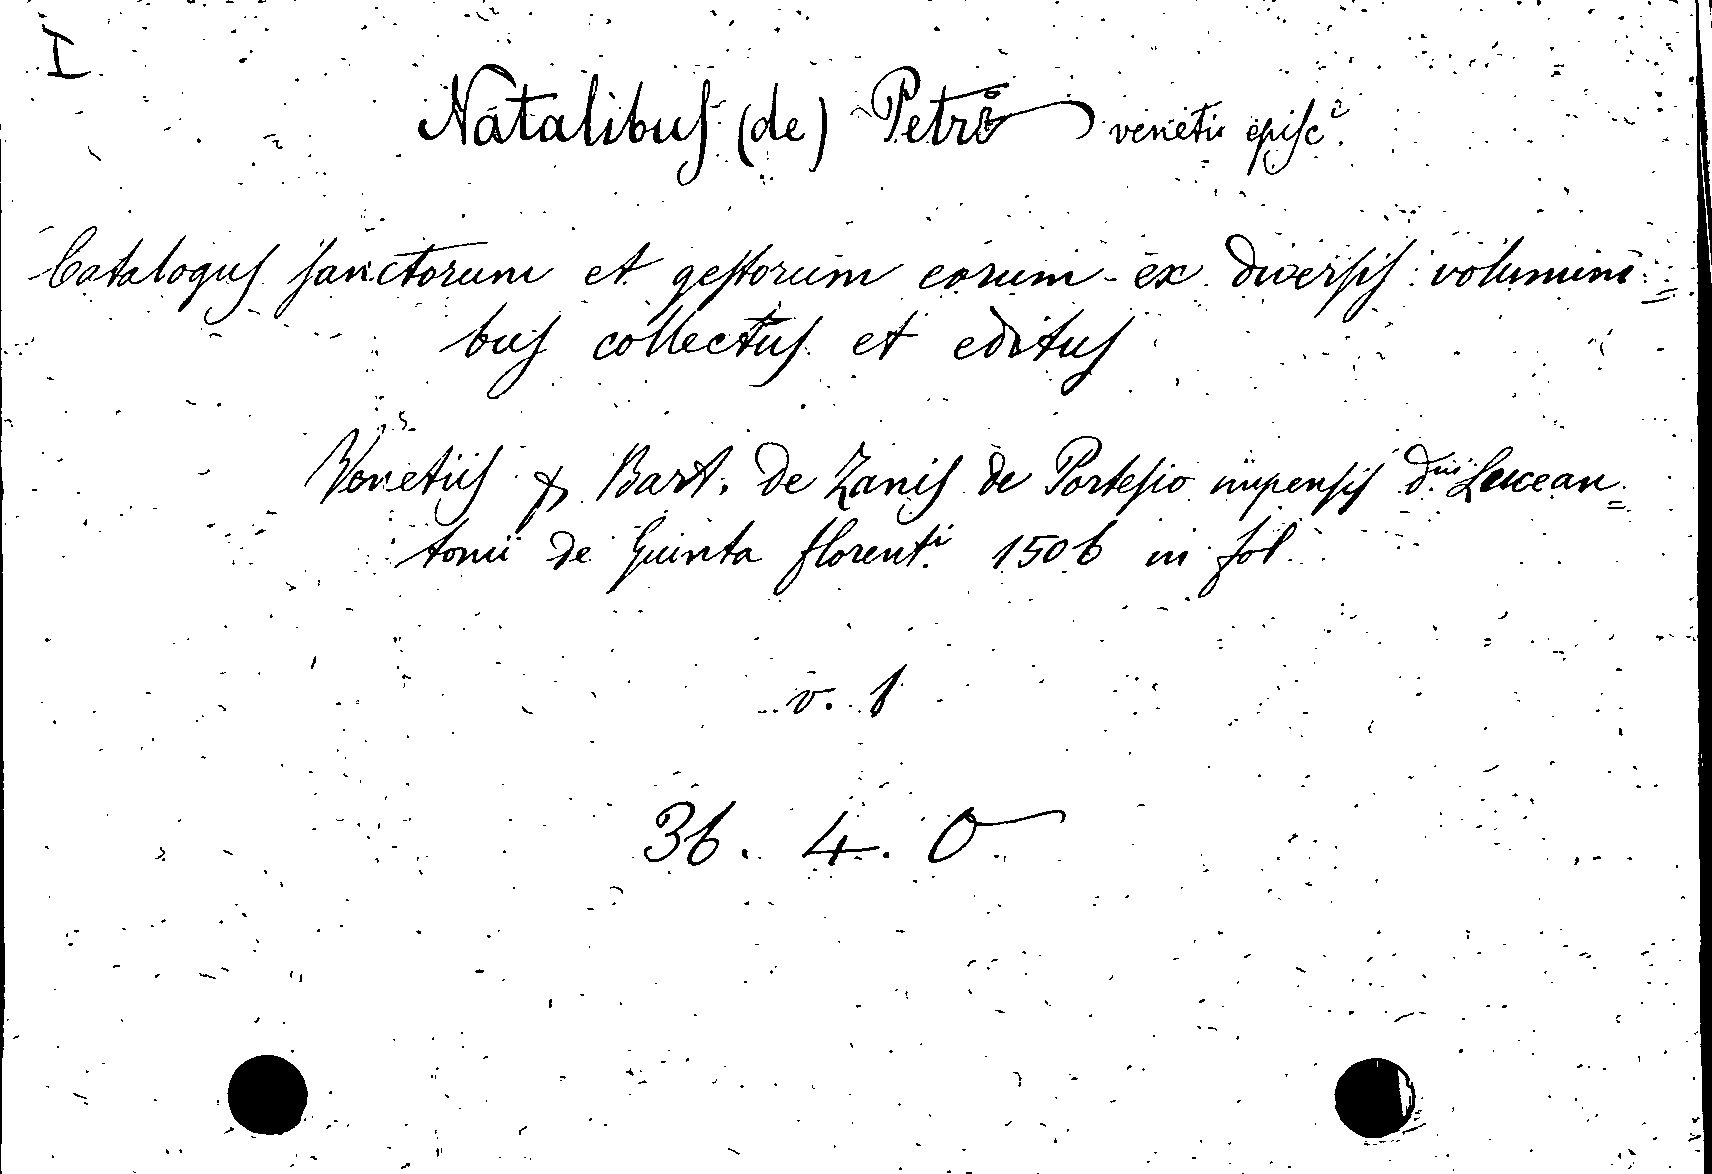 I
Natalibus (de) Petro venetii episc.
Catalogus sanctorum et gestorum eorum ex diversis volumini=
bus collectus et editus
Venetiis p Bart. de Zanis de Portesio impensis dni Lucean=
tonii de Giunta florenti. 1506 in fol
v. 1
36. 4. O